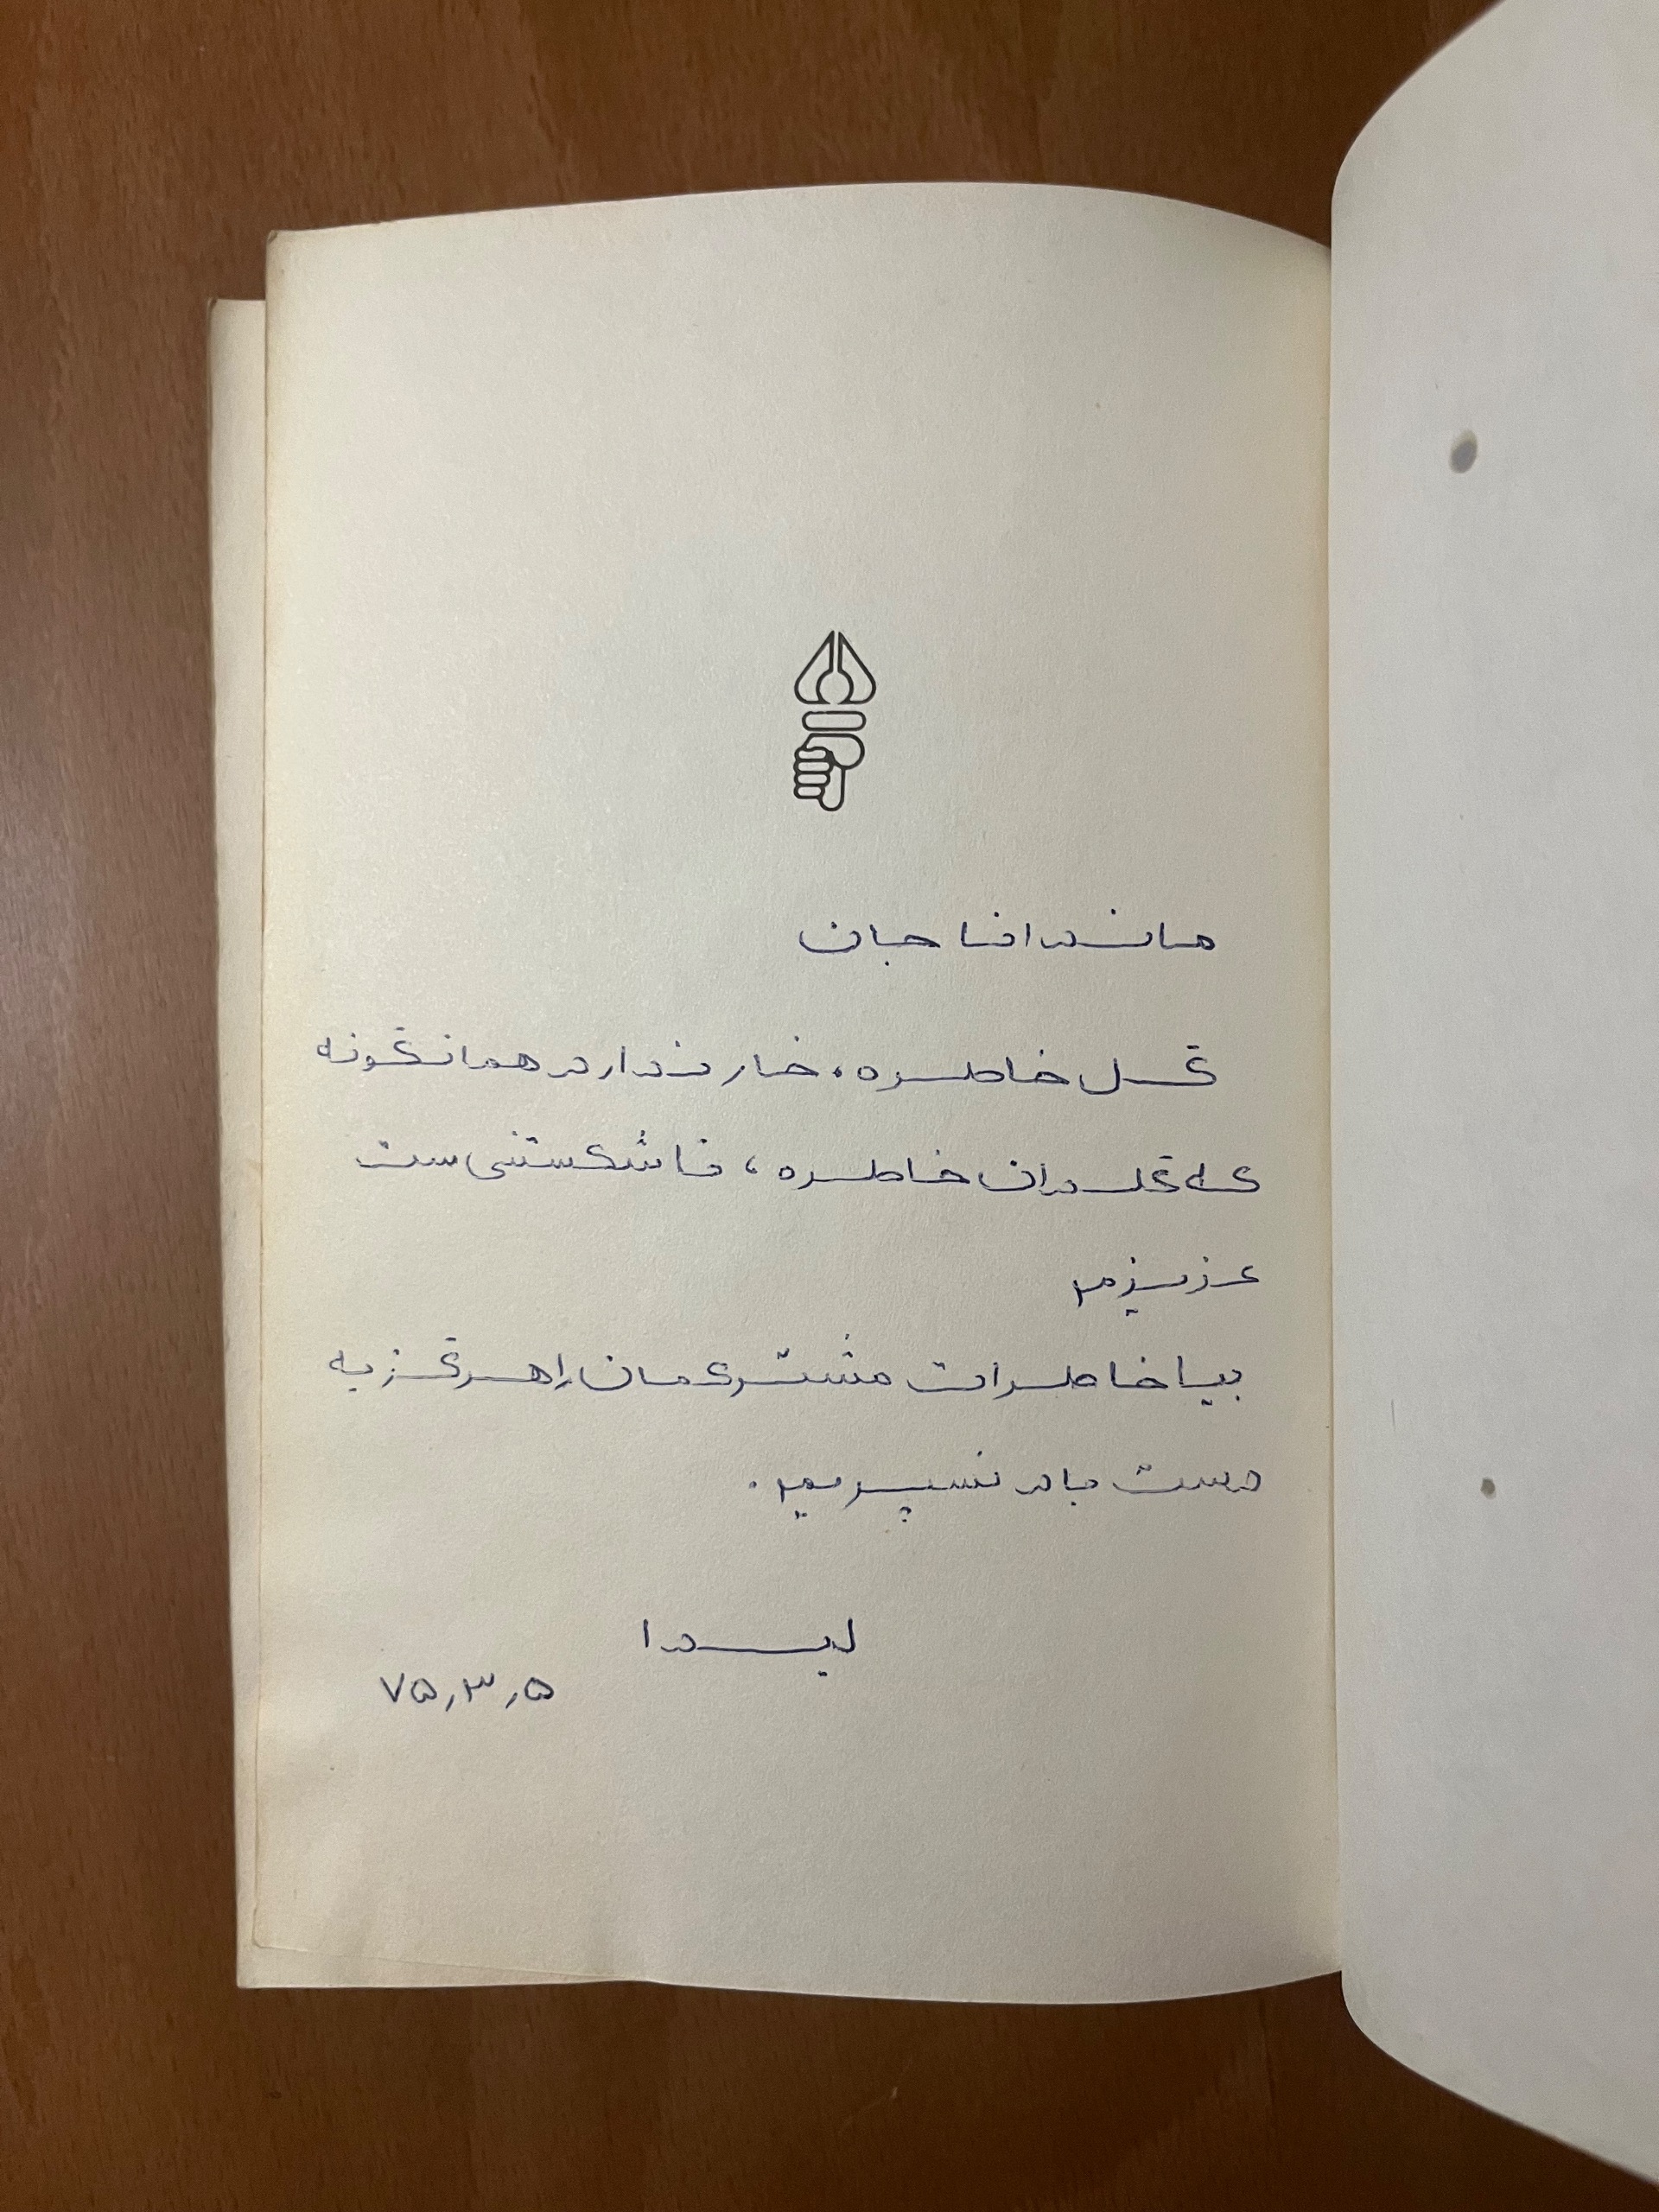 ماندانا جان
گل خاطره، خار ندارد همانگونه
که گلدان خاطره، ناشکستنی ست
عزیزم
بیا خاطرات مشترکمان را هرگز به
دست باد نسپریم.
لیدا
۷۵٫۳٫۵